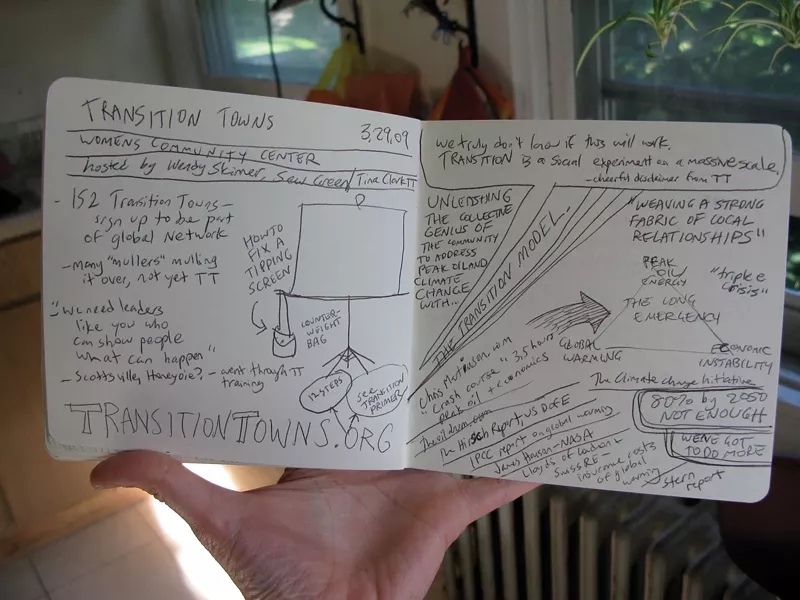 TRANSITION TOWNS
3.29.09
WOMENS COMMUNITY CENTER
hosted by Wendy Skinner, Sew Green/Tina Clark TT
- 152 Transition Towns-
sign up to be part
of global Network
- many "mullers" mulling
it over, not yet TT
"we need leaders
like you who
can show people
what can happen"
- Scottsville, Honeyoie? - went through TT
training
HOW TO
FIX A
TIPPING
SCREEN
COUNTER-
WEIGHT
BAG
12 STEPS
SEE
TRANSITION
PRIMER
TRANSITIONTOWNS.ORG
we truly don't know if this will work.
TRANSITION is a social experiment on a massive scale.
- cheerful disclaimer from TT
UNLEASHING
THE COLLECTIVE
GENIUS OF
THE COMMUNITY
TO ADDRESS
PEAK OIL AND
CLIMATE
CHANGE
WITH...
THE TRANSITION MODEL.
"WEAVING A STRONG
FABRIC OF LOCAL
RELATIONSHIPS"
PEAK
OIL
ENERGY
"triple
crisis"
THE LONG
EMERGENCY
GLOBAL
WARMING
ECONOMIC
INSTABILITY
Chris Martenson.com
"crash course" 3.5 hours
peak oil + economics
Theoildrum.com
The Hirsch Report, US DOE
IPCC report on global warming
James Hansen - NASA
Lloyds of London
SwissRE -
insurance costs
of global
warming
stern
report
The Climate change Initiative
80% by 2050
NOT ENOUGH
WE'VE GOT
TO DO MORE